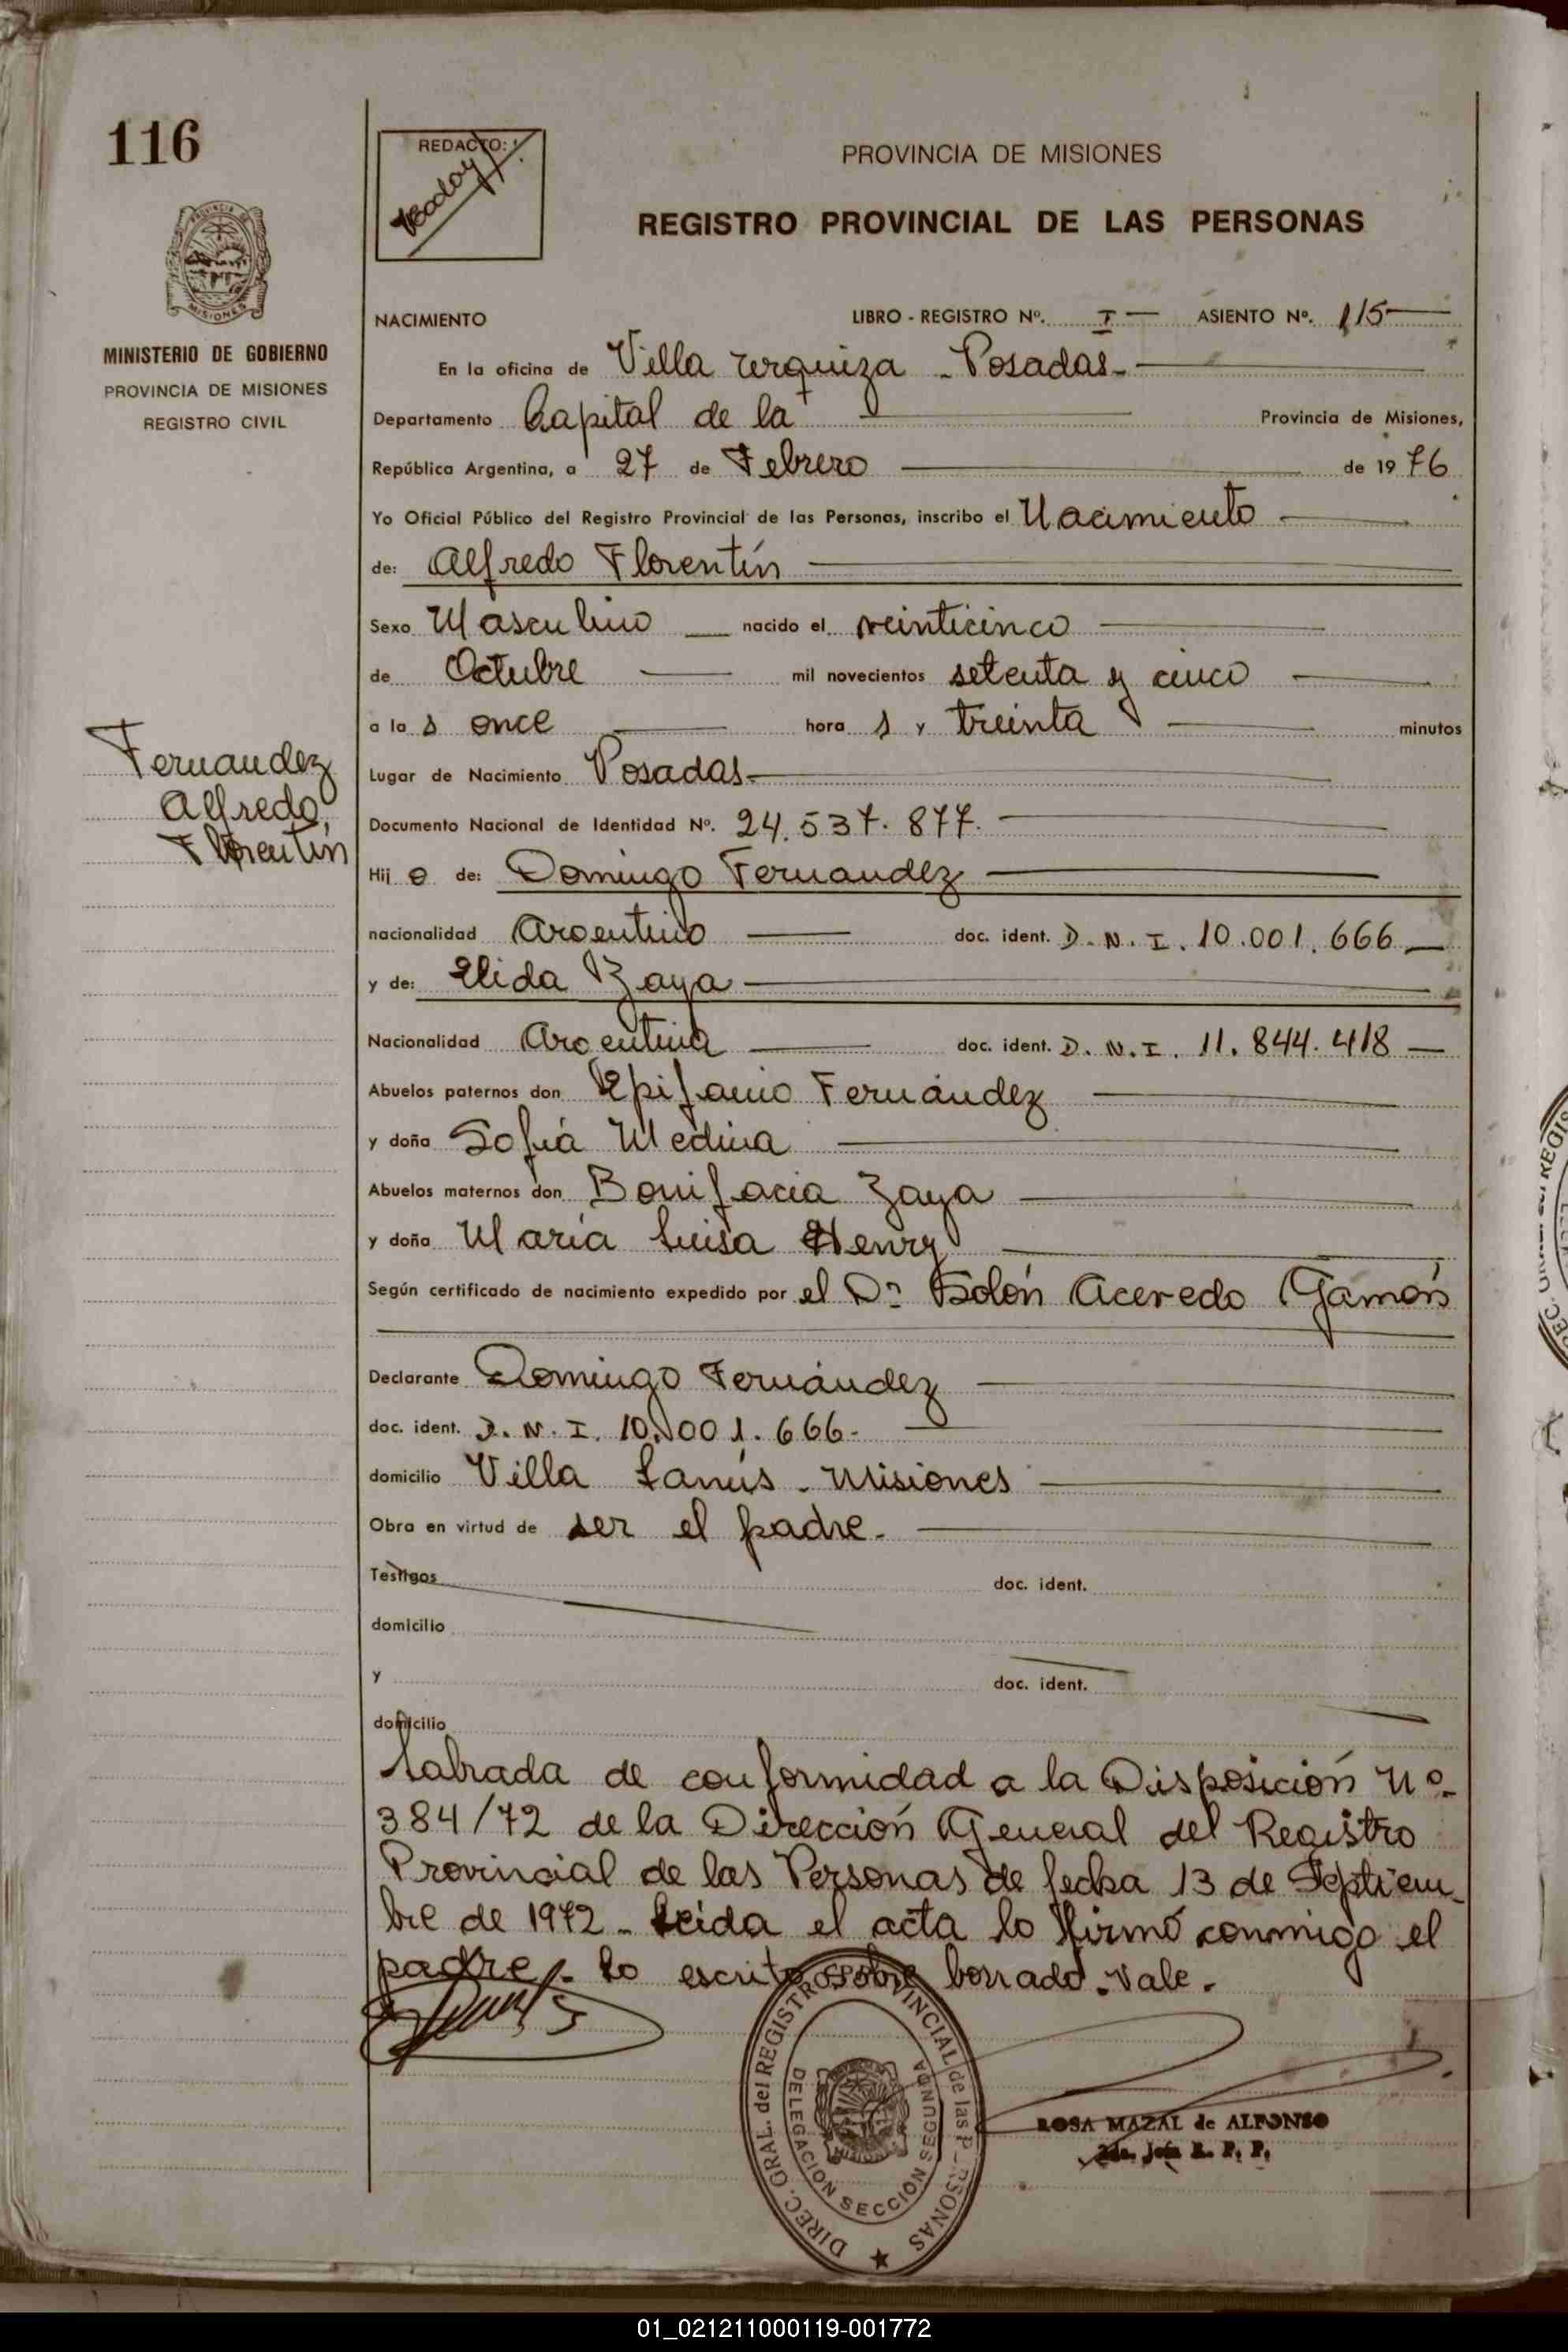 116
REDACTO:
PROVINCIA DE MISIONES
REGISTRO PROVINCIAL DE LAS PERSONAS
PROVINCIA DE
MISIONES
MINISTERIO DE GOBIERNO
PROVINCIA DE MISIONES
REGISTRO CIVIL
NACIMIENTO LIBRO - REGISTRO Nº. I ASIENTO Nº. 115
En la oficina de Villa Urquiza - Posadas -
Departamento Capital de la Provincia de Misiones,
República Argentina, a 27 de Febrero de 1976
Yo Oficial Público del Registro Provincial de las Personas, inscribo el Nacimiento
de: Alfredo Florentín
Sexo Masculino nacido el veinticinco
de Octubre mil novecientos setenta y cinco
a las once horas y treinta minutos
Lugar de Nacimiento Posadas
Fernandez
Alfredo
Florentín
Documento Nacional de Identidad Nº. 24.537.877.
Hijo de: Domingo Fernandez
nacionalidad Argentino doc. ident. D.N.I. 10.001.666
y de: Elida Zaya
Nacionalidad Argentina doc. ident. D.N.I. 11.844.418
Abuelos paternos don Epifanio Fernández
y doña Sofía Medina
Abuelos maternos don Bonifacia Zaya
y doña María Luisa Henry
Según certificado de nacimiento expedido por el Dr. Solón Acevedo Gamón
Declarante Domingo Fernández
doc. ident. D.N.I. 10.001.666-
domicilio Villa Lanús - Misiones
Obra en virtud de ser el padre.
Testigos doc. ident.
domicilio
y doc. ident.
domicilio
Labrada de conformidad a la Disposición Nº
384/72 de la Dirección General del Registro
Provincial de las Personas de fecha 13 de Septiem-
bre de 1972 - Leída el acta la firmó conmigo el
padre. Lo escrito sobre borrado. Vale.
DIREC. GRAL. del REGISTRO PROVINCIAL de las PERSONAS
DELEGACION SECCION SEGUNDA
ROSA MAZAL de ALFONSO
R. P. P.
01_021211000119-001772